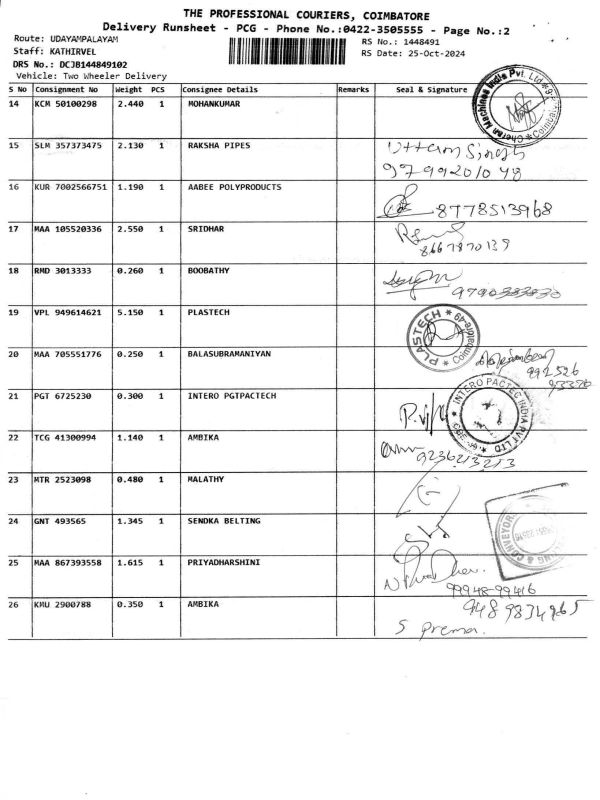 THE PROFESSIONAL COURIERS, COIMBATORE
Delivery Runsheet - PCG - Phone No.:0422-3505555 - Page No.:2
Route: UDAYAMPALAYAM
RS No.: 1448491
Staff: KATHIRVEL
RS Date: 25-Oct-2024
DRS No.: DCJB144849102
Vehicle: Two Wheeler Delivery
S No Consignment No Weight PCS Consignee Details Remarks Seal & Signature
14 KCM 50100298 2.440 1 MOHANKUMAR
15 SLM 357373475 2.130 1 RAKSHA PIPES Uttam Singh
9799201048
16 KUR 7002566751 1.190 1 AABEE POLYPRODUCTS 8778513968
17 MAA 105520336 2.550 1 SRIDHAR
8667870139
18 RMD 3013333 0.260 1 BOOBATHY
19 VPL 949614621 5.150 1 PLASTECH PLASTECH
20 MAA 705551776 0.250 1 BALASUBRAMANIYAN
991526
21 PGT 6725230 0.300 1 INTERO PGTPACTECH INTERO PACTEC INDIA PVT LTD
22 TCG 41300994 1.140 1 AMBIKA
9236213213
23 MTR 2523098 0.480 1 MALATHY
24 GNT 493565 1.345 1 SENDKA BELTING
25 MAA 867393558 1.615 1 PRIYADHARSHINI
99948-99416
26 KMU 2900788 0.350 1 AMBIKA 9489834965
S Prema.